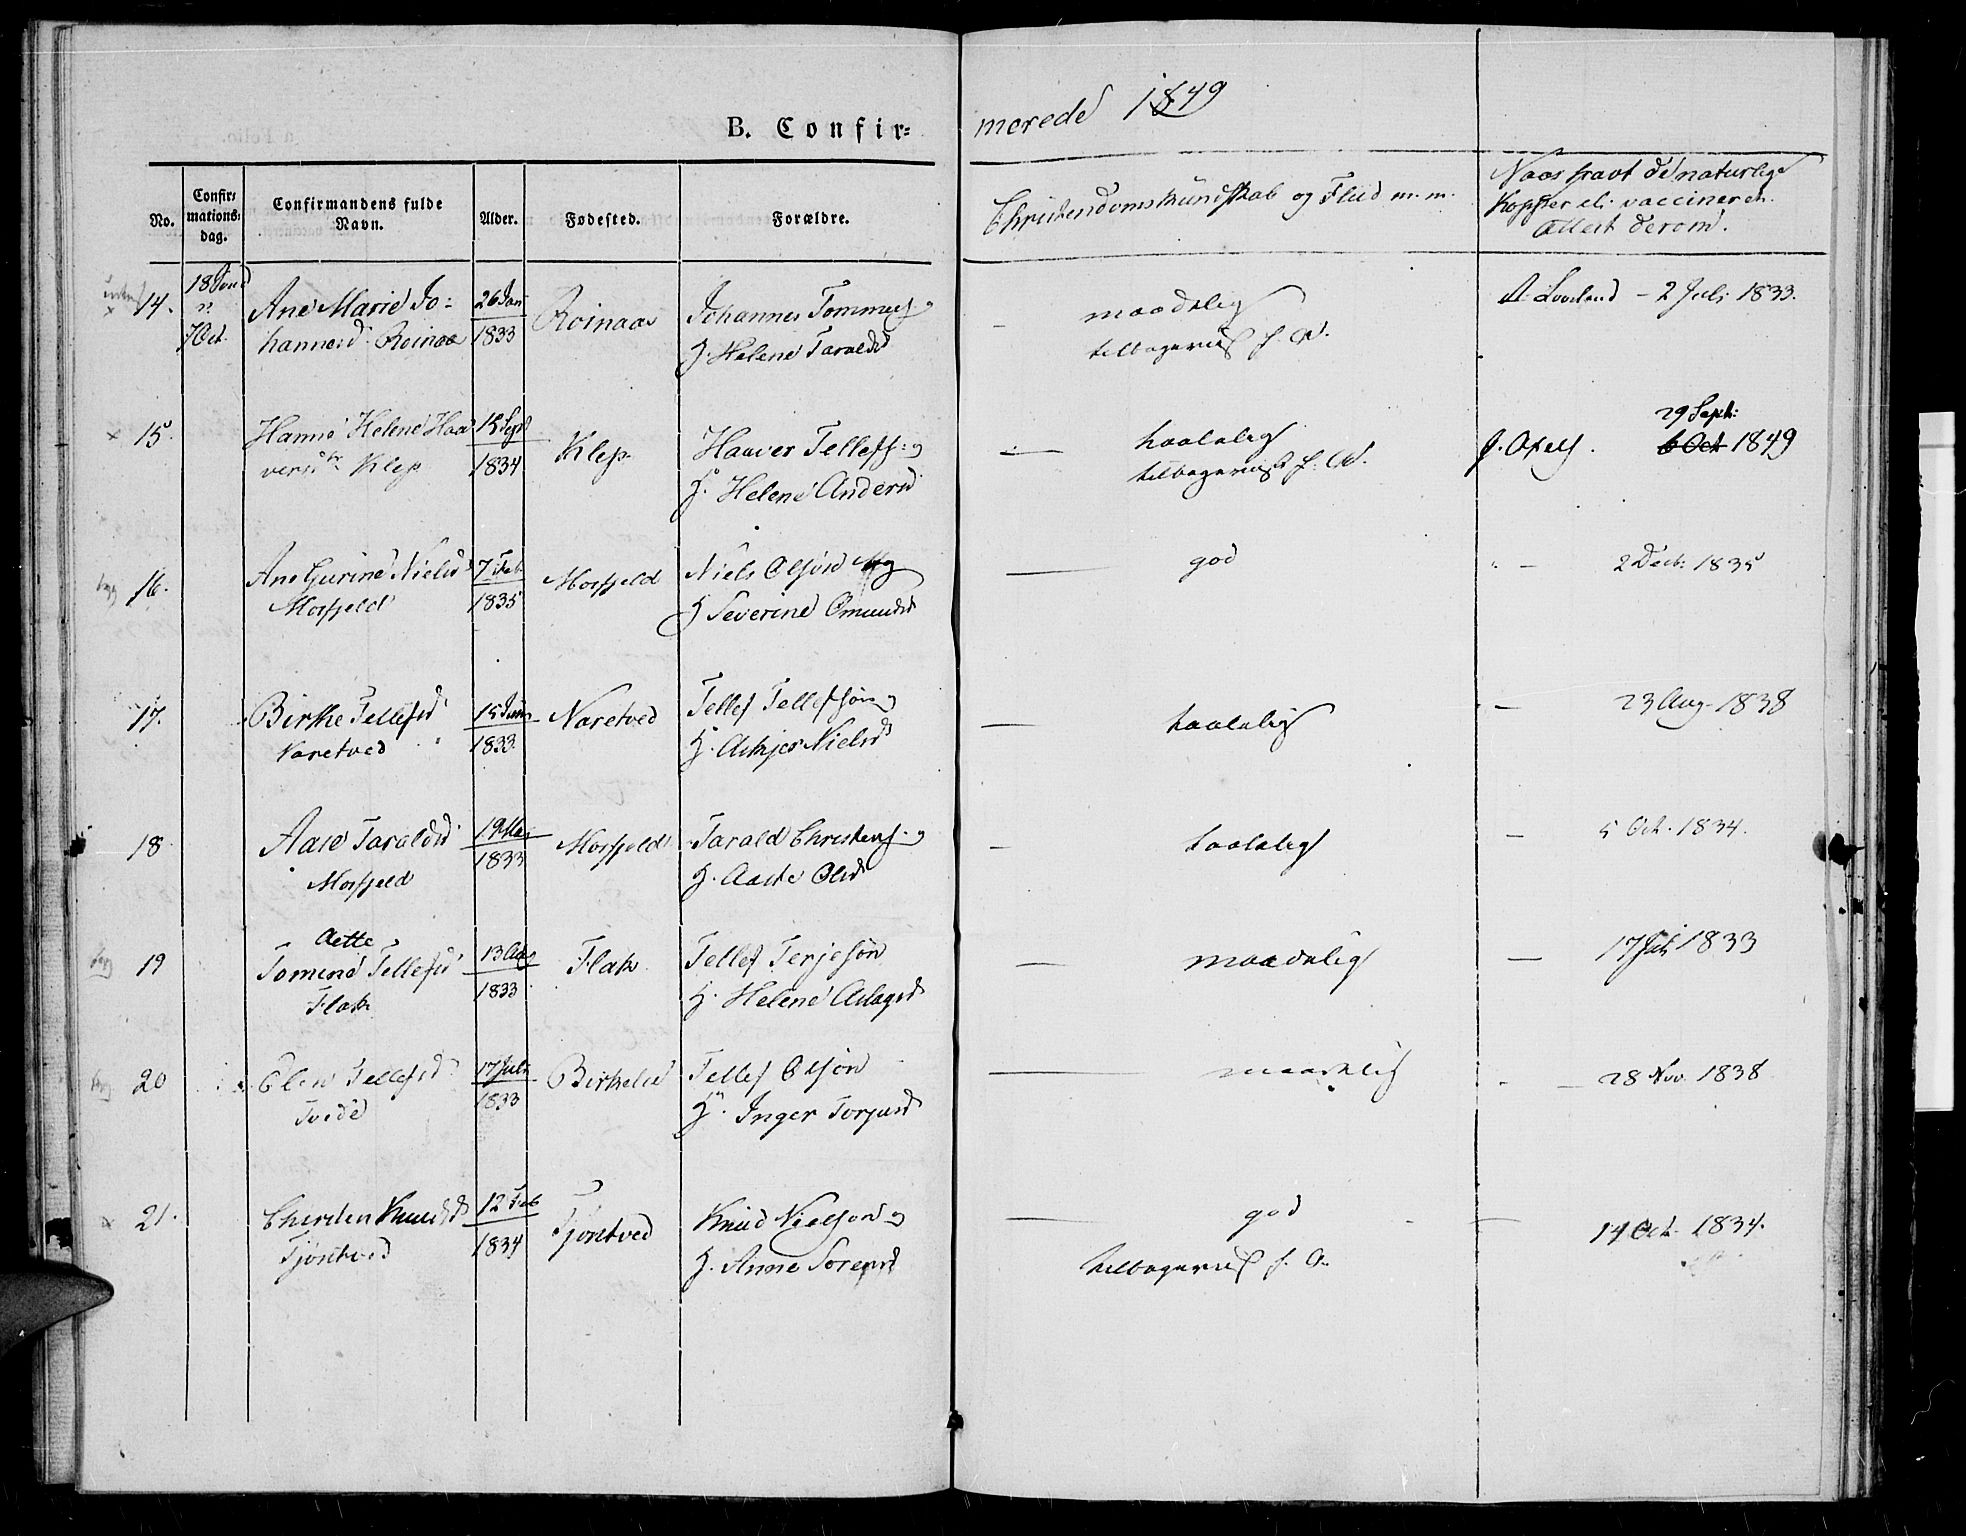 B. Confir=
merede 1849
No.
Confir=
mations=
dag.
Confirmandens fulde
Navn.
Alder.
Fødested.
Forældre.
Christendomskundskab og Flid m. m.
Naar havt de naturlige
Kopper el. vaccineret.
Attest derom.
14.
18 Sønd
7 Oct.
Ane Marie Jo=
hannesd. Roinaas
26 Jan
1833
Roinaas
Johannes Tommes
H. Helene Taralds
maadelig
2 Juli 1833.
15.
Hanne Helene Haa
versdtr Klep
15 Sept
1834
Klep
Haaver Tellefs: og
H. Helene Andersd
taalelig
29 Sept:
6 Oct 1849
16.
Ane Gurine Nielsd
Mosfjeld
7 Feb.
1835
Mosfjeld
Niels Olsøn og
H Severine Omundsd
god
2 Decb. 1835
17.
Birthe Tellefsd
Naretved
15 Juni
1833
Naretved
Tellef Tellefsøn og
H. Askjer Nielsd
taalelig
23 Aug. 1838
18
Aase Taraldsd
Mosfjeld
19 Mai
1833
Mosfjeld
Tarald Christens. og
H. Aaste Olsd
taalelig
5 Oct. 1834.
19
Aette
Tomine Tellefsd
Flak
13 Aug
1833
Flak
Tellef Terjesøn
H. Helene Aslagsd
maadelig
17 Juli 1833
20
Elen Tellefsd
Tvede
17 Juli
1833
Birkelid
Tellef Olsøn
H. Inger Torjusd
maadelig
28 Nov. 1838
21.
Chersten Knudsd
Tjøstved
12 Feb
1834
Tjøstved
Knud Nielsøn og
H. Anne Sørensd
god
14 Oct. 1834.